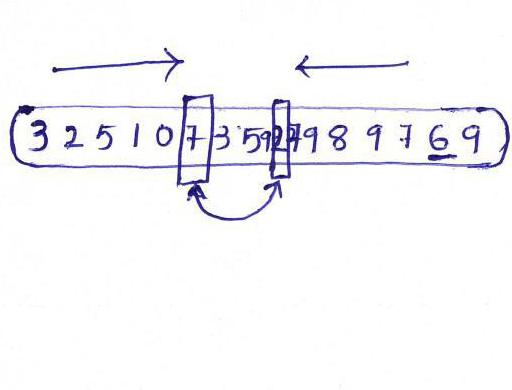 3 2 5 1 0 7 3 5 9 2 7 9 8 9 7 6 9